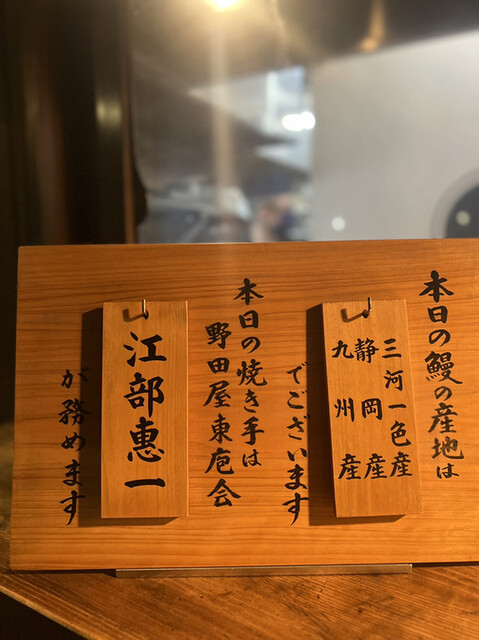 本日の鰻の産地は
三河一色産
静岡産
九州産
でございます
本日の焼き手は
野田屋東庖会
江部惠一
が務めます